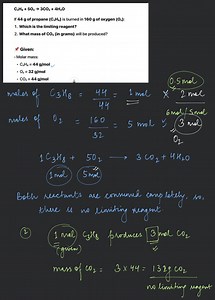 C₃H₈ + 5O₂ → 3CO₂ + 4H₂O
If 44 g of propane (C₃H₈) is burned in 160 g of oxygen (O₂):
1. Which is the limiting reagent?
2. What mass of CO₂ (in grams) will be produced?
✓ Given:
• Molar mass:
• C₃H₈ = 44 g/mol
• O₂ = 32 g/mol
• CO₂ = 44 g/mol
0.5 mol
moles of C3H8 = 44/44 = 1 mol × 2 mol
moles of O2 = 160/32 = 5 mol 3 mol
1 C3H8 + 5O2 → 3CO2 + 4H2O
1 mol 5 mol
Both reactants are consumed completely so,
there is no limiting reagent
② 1 mol C3H8 produces 3 mol CO2
(given)
mass of CO2 = 3 × 44 = 132g CO2
no limiting reagent